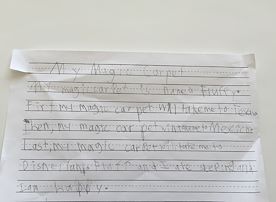 My Magic Carpet
My magic carpet is named Fluffy.
First, my magic carpet will take me to
Then, my magic carpet will take me to Mexico.
Last, my magic carpet will take me to
Disneyland. Fluffy and I are and
I am happy.